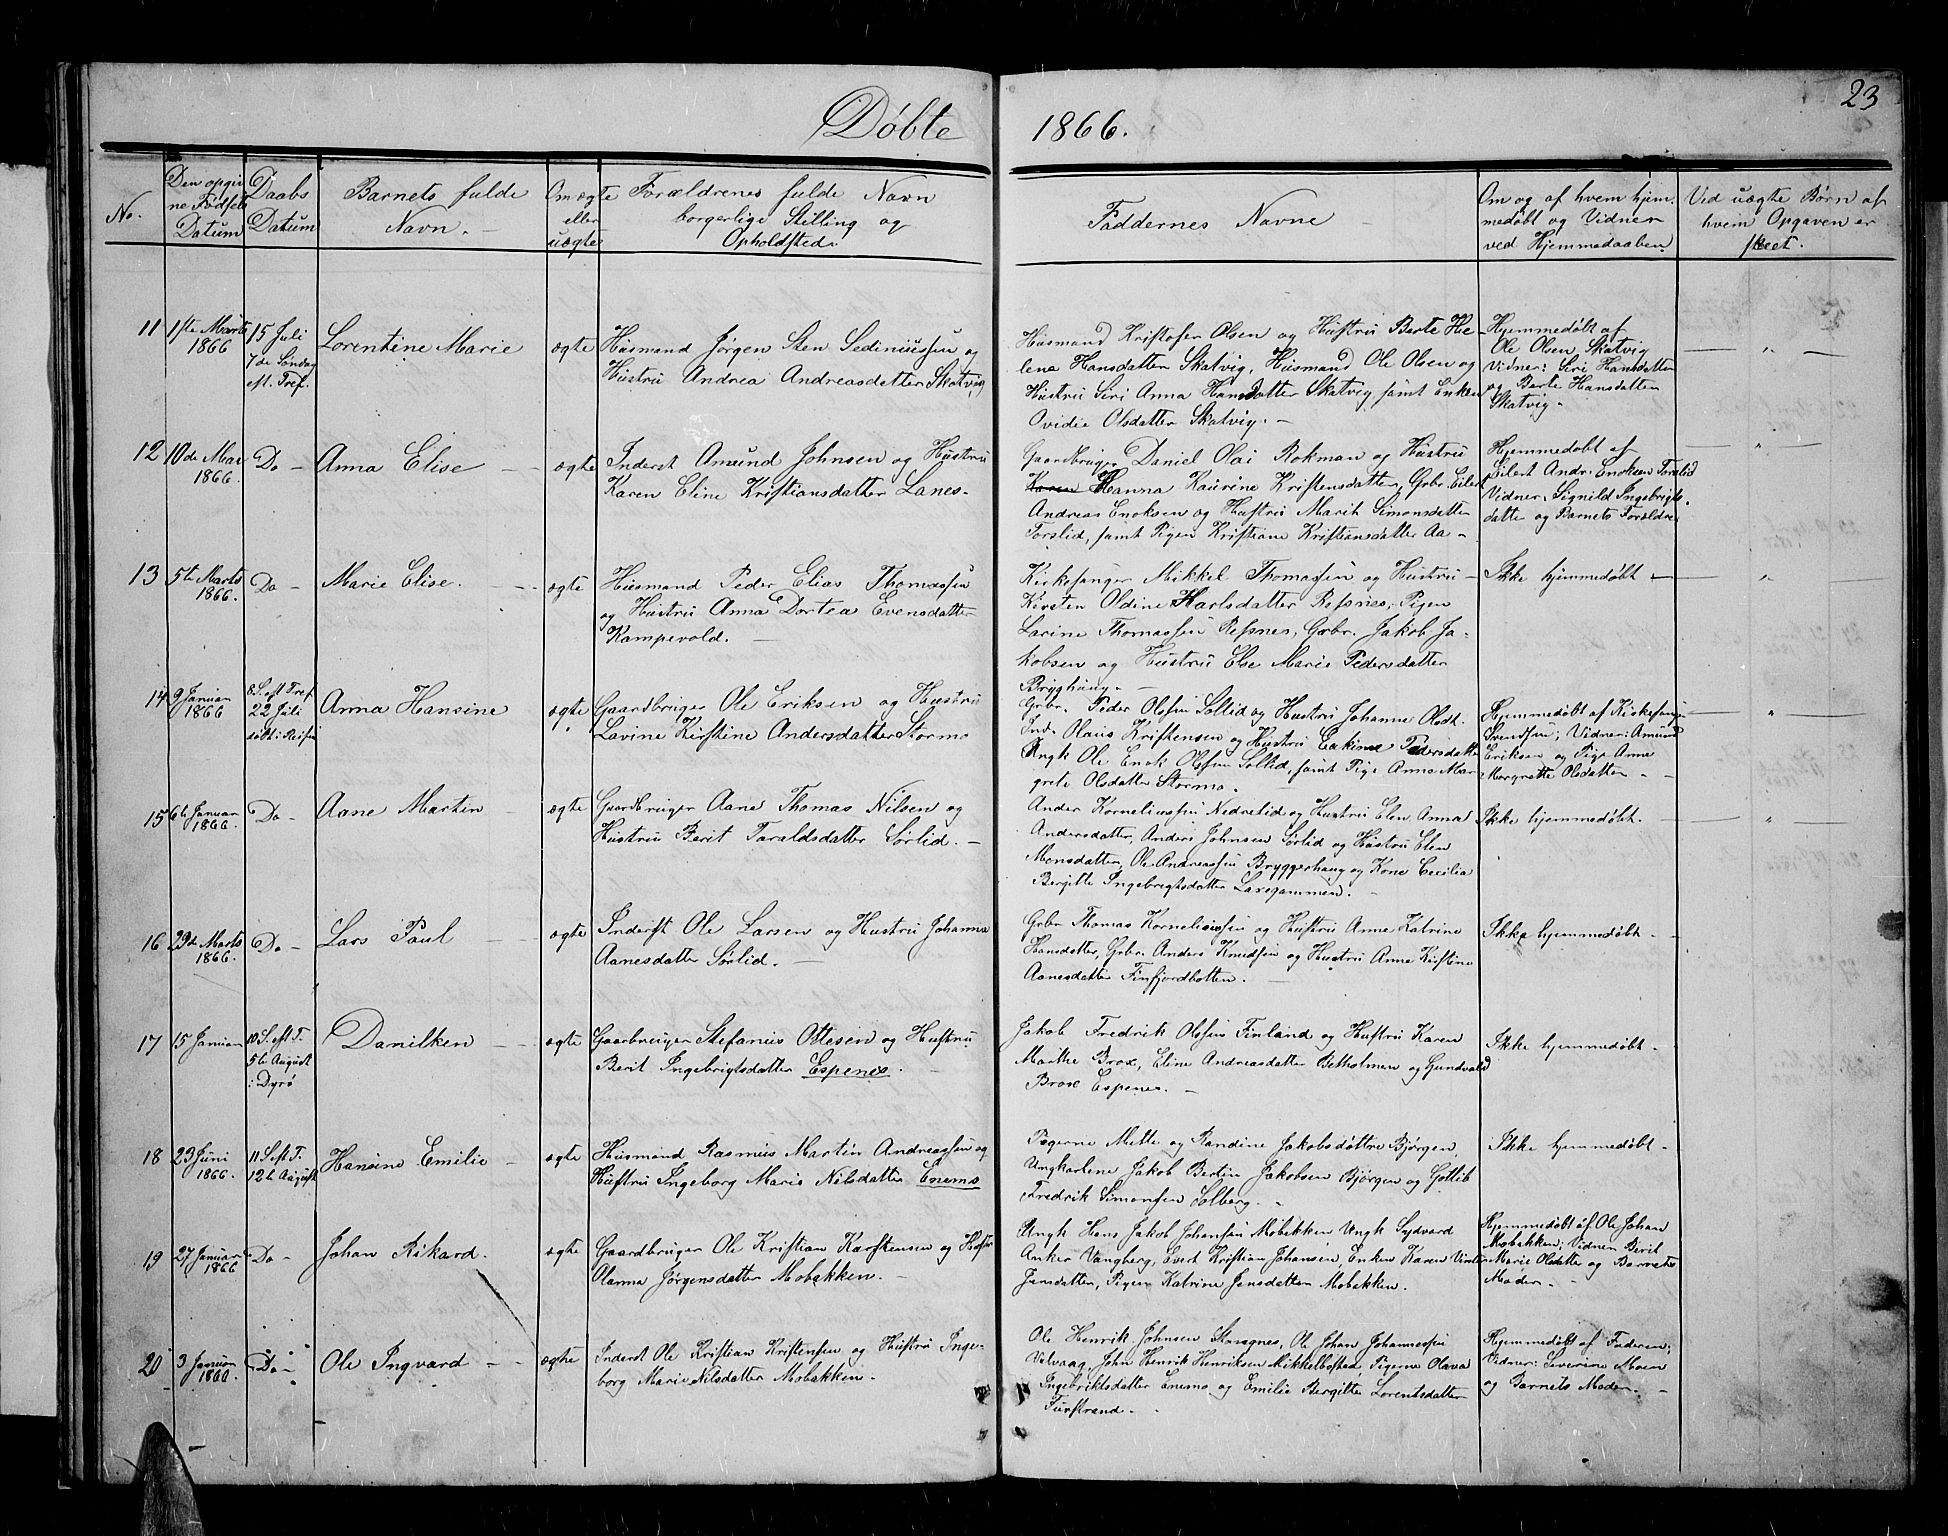 23
Døbte 1866.
No.
Den opgivne Fødsels Datum
Daabs Datum
Barnets fulde Navn.
Om ægte eller uægte
Forældrenes fulde Navn borgerlige Stilling og Opholdsted.
Faddernes Navne
Om og af hvem hjemmedøbt og Vidner ved Hjemmedaaben.
Ved uægte Børn af hvem Opgaven er skeet.
11
1ste Marts
1866
15 Juli
7de Søndag
eft. Tref.
Lorentine Marie
ægte
Husmand Jørgen Sten Sediniussen og
Hustru Andrea Andreasdatter Skatvig
Husmand Kristofer Olsen og Hustru Berte He-
lena Hansdatter Skatvig, Husmand Ole Olsen og
Hustru Siri Anna Hansdatter Skatvig, samt Enken
Ovidie Olsdatter Skatvig. -
Hjemmedøbt af
Ole Olsen, Skatvig
Vidner: Siri Hansdatter
og Berte Hansdatter
Skatvig -
— " —
12
10de Mar
1866.
Do -
Anna Elise
ægte
Inderst Amund Johnsen og Hustru
Karen Eline Kristiansdatter Lanes-
Gaardbruger Daniel Olai Rokman og Hustru
Karen Hanna Kaurine Kristensdatter, Grbr. Eilert
Andreas Enoksen og Hustru Marit Simonsdatter
Forslid, samt Pigen Kristiane Kristiansdatter Aa -
Hjemmedøbt af
Eilert Andr. Enoksen Forslid
Vidner: Signild Ingebrigts-
datte og Barnets Forældre
— " —
13
5te Marts
1866.
Do -
Marie Elise.
ægte
Husmand Peder Elias Thomassen
og Hustru Anna Dortea Evensdatter
Kampevold. -
Kirkesanger Mikkel Thomassen og Hustru -
Kirsten Oldine Karlsdatter Resnes, Pigen
Larine Thomassen Resnes, Grbr. Jakob Ja-
kobsen og Hustru Else Marie Pedersdatter
Brygghaug -
Ikke hjemmedøbt -
"
14
9 Januar
1866
8 S. eft Tref
22 Juli
døbt i Reisen
Anna Hansine
ægte
Gaardbruger Ole Eriksen og Hustru
Lavine Kirstine Andersdatter Stormo
Grbr. Peder Olsen Sollid og Hustru Johanna Olsdt.
Ind. Olaus Kristensen og Hustru Pedersdatter
Ungk Ole Enok Olsen Sollid, samt Pige Anne Mar-
grete Olsdatter Stormo. -
Hjemmedøbt af Kirkesanger
Svendsen; Vidner: Amund
Eriksen og Pige Anne
Margrethe Olsdatter -
— " —
15
6te Januar
1866.
Do -
Aane Martin
ægte
Gaardbruger Aane Thomas Nilsen og
Hustru Berit Taraldsdatter Sørlid. -
Ander Korneliussen Nedrelid og Hustru Elen Anna
Andersdatter, Anders Johnsen Sørlid og Hustru Elen
Monsdatter, Ole Andreassen Bryggerhaug og Kone Cecilia
Berjitte Ingebrigtsdatter Larsgammen. -
Ikke hjemmedøbt. -
— " —
16
23de Marts
1866.
Do -
Lars Paul
ægte
Inderst Ole Larsen og Hustru Johanna
Aanesdatter Sørlid. -
Grbr Thomas Korneliussen og Hustru Anne Katrine
Hansdatter, Grbr. Anders Knudsen og Hustru Anne Kirstine
Aanesdatter Finfjordbotten.
Ikke hjemmedøbt. -
17
15 Januar
10 S. eft T.
5te August
i Dyrø
Danilken
ægte
Gaarbruger Stefanus Ottesen og Hustru
Berit Ingebrigtsdatter Espenes.
Jakob Fredrik Olsen Finland og Hustru Karen
Marthe Brox, Eline Andreasdatter Betholmen og Gundvald
Brox Espenes. -
Ikke hjemmedøbt. -
18
23 Juni
1866.
11 S eft T.
12te August
Hansine Emilie
ægte
Husmand Rasmus Martin Andreassen og
Hustru Ingeborg Marie Nilsdatter Enemo
Pigerne Mette og Randine Jakobsdøttre Bjørgen,
Ungkarlene Jakob Bertin Jakobsen Bjørgen og Gotlib
Fredrik Simonsen Solberg. -
Ikke hjemmedøbt. -
19
27 Januar
1866
Do -
Johan Rikard.
ægte
Gaardbruger Ole Kristian Karstensen og Hustr
Olanna Jørgensdatter Mobakken. -
Ungk Hans Jakob Johansen Mobakken Ungk Sydvard
Anker Vangberg, Evert Kristian Johansen, Enken Karen Vinter
Jensdatter, Pigen Katrine Jensdatter Mobakken.
Hjemmedøbt af Ole Johan
Mobakken; Vidner Berit
Marie Olsdatte og Barnets
Moder. -
20
3 Januar
1866.
Do -
Ole Ingvard -
ægthe
Inderst Ole Kristian Kristensen og Hustru Inge-
borg Marie Nilsdatter Mobakken. -
Ole Henrik Johnsen Stangnes, Ole Johan Johannessen
Velvaag, John Henrik Henriksen Mikkelbostad, Pigerne Olava
Ingebriktsdatter Enemo og Emilie Bergitte Lorentsdatter
Furstrand. -
Hjemmedøbt af Faderen;
Vidner: Severine Moen
og Barnets Moder. -